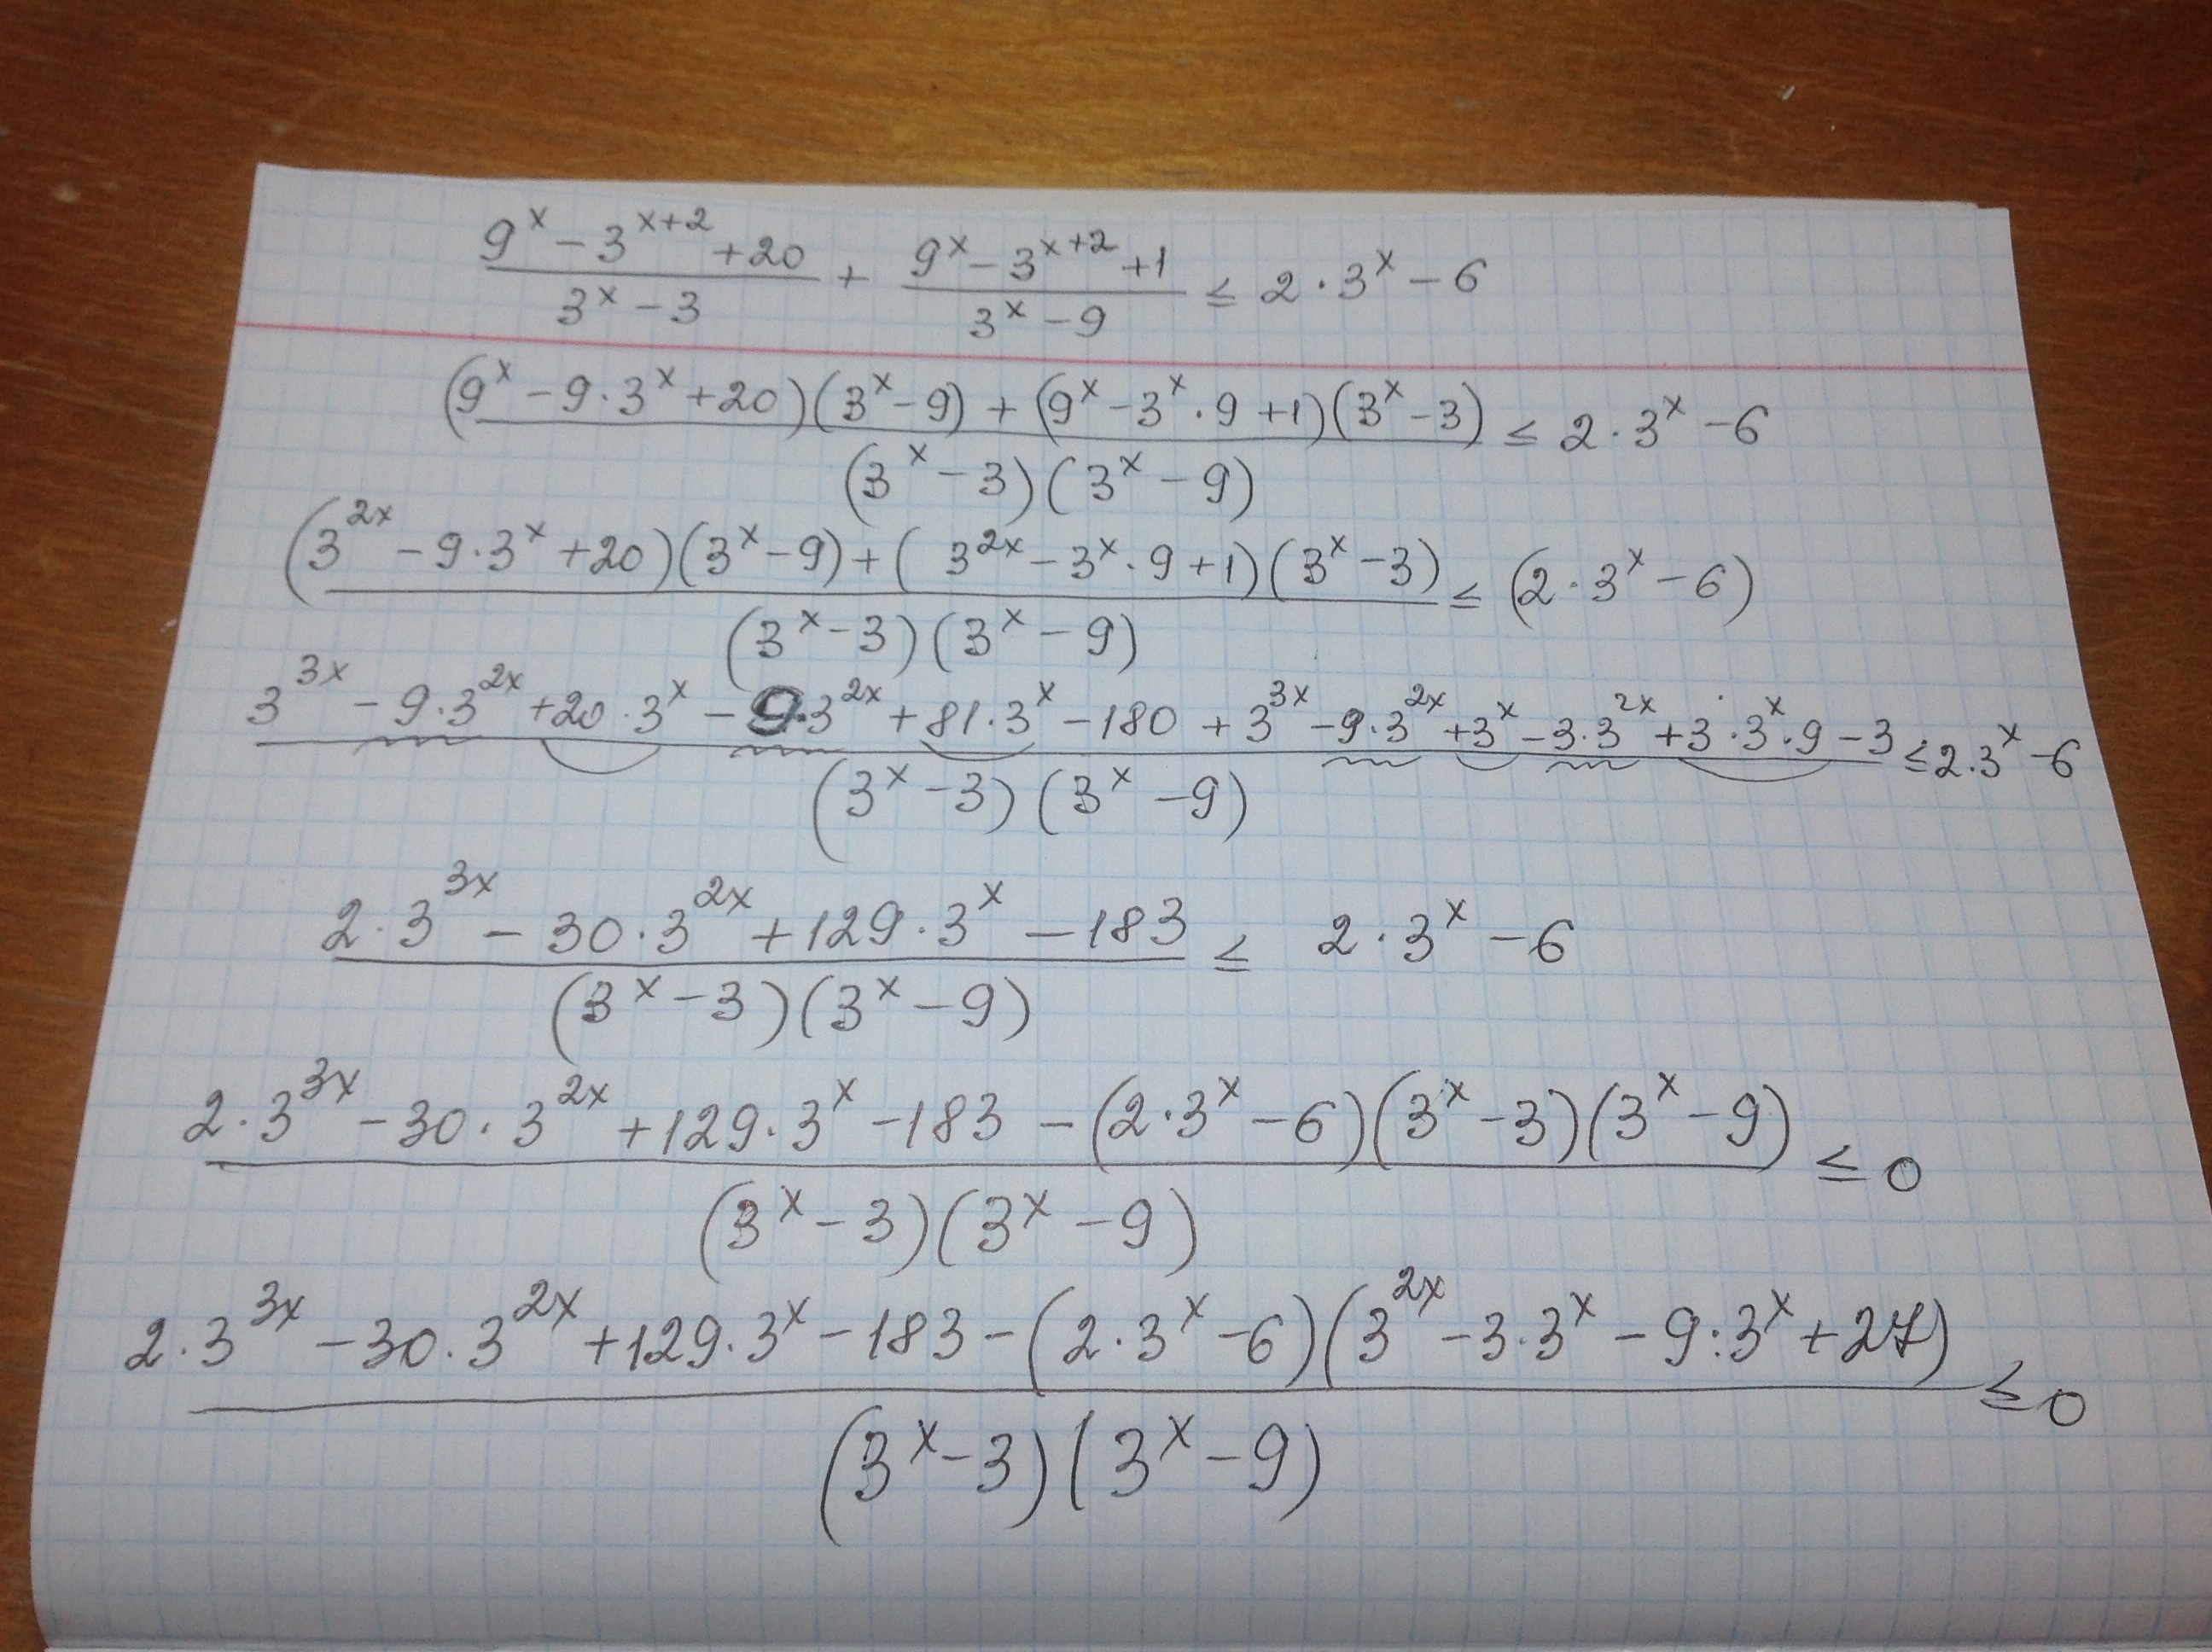 (9^x - 3^(x+2) + 20)/(3^x - 3) + (9^x - 3^(x+2) + 1)/(3^x - 9) ≤ 2·3^x - 6
((9^x - 9·3^x + 20)(3^x - 9) + (9^x - 3^x·9 + 1)(3^x - 3))/((3^x - 3)(3^x - 9)) ≤ 2·3^x - 6
((3^(2x) - 9·3^x + 20)(3^x - 9) + (3^(2x) - 3^x·9 + 1)(3^x - 3))/((3^x - 3)(3^x - 9)) ≤ (2·3^x - 6)
(3^(3x) - 9·3^(2x) + 20·3^x - 9·3^(2x) + 81·3^x - 180 + 3^(3x) - 9·3^(2x) + 3^x - 3·3^(2x) + 3·3^x·9 - 3)/((3^x - 3)(3^x - 9)) ≤ 2·3^x - 6
(2·3^(3x) - 30·3^(2x) + 129·3^x - 183)/((3^x - 3)(3^x - 9)) ≤ 2·3^x - 6
(2·3^(3x) - 30·3^(2x) + 129·3^x - 183 - (2·3^x - 6)(3^x - 3)(3^x - 9))/((3^x - 3)(3^x - 9)) ≤ 0
(2·3^(3x) - 30·3^(2x) + 129·3^x - 183 - (2·3^x - 6)(3^(2x) - 3·3^x - 9:3^x + 27))/((3^x - 3)(3^x - 9)) ≤ 0